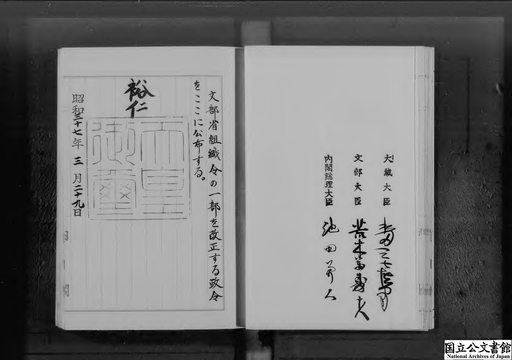 文部省組織令の一部を改正する政令
をここに公布する。
裕仁
天皇
御璽
昭和三十七年三月二十九日
大蔵大臣
文部大臣 荒木萬壽夫
内閣総理大臣 池田勇人
国立公文書館
National Archives of Japan